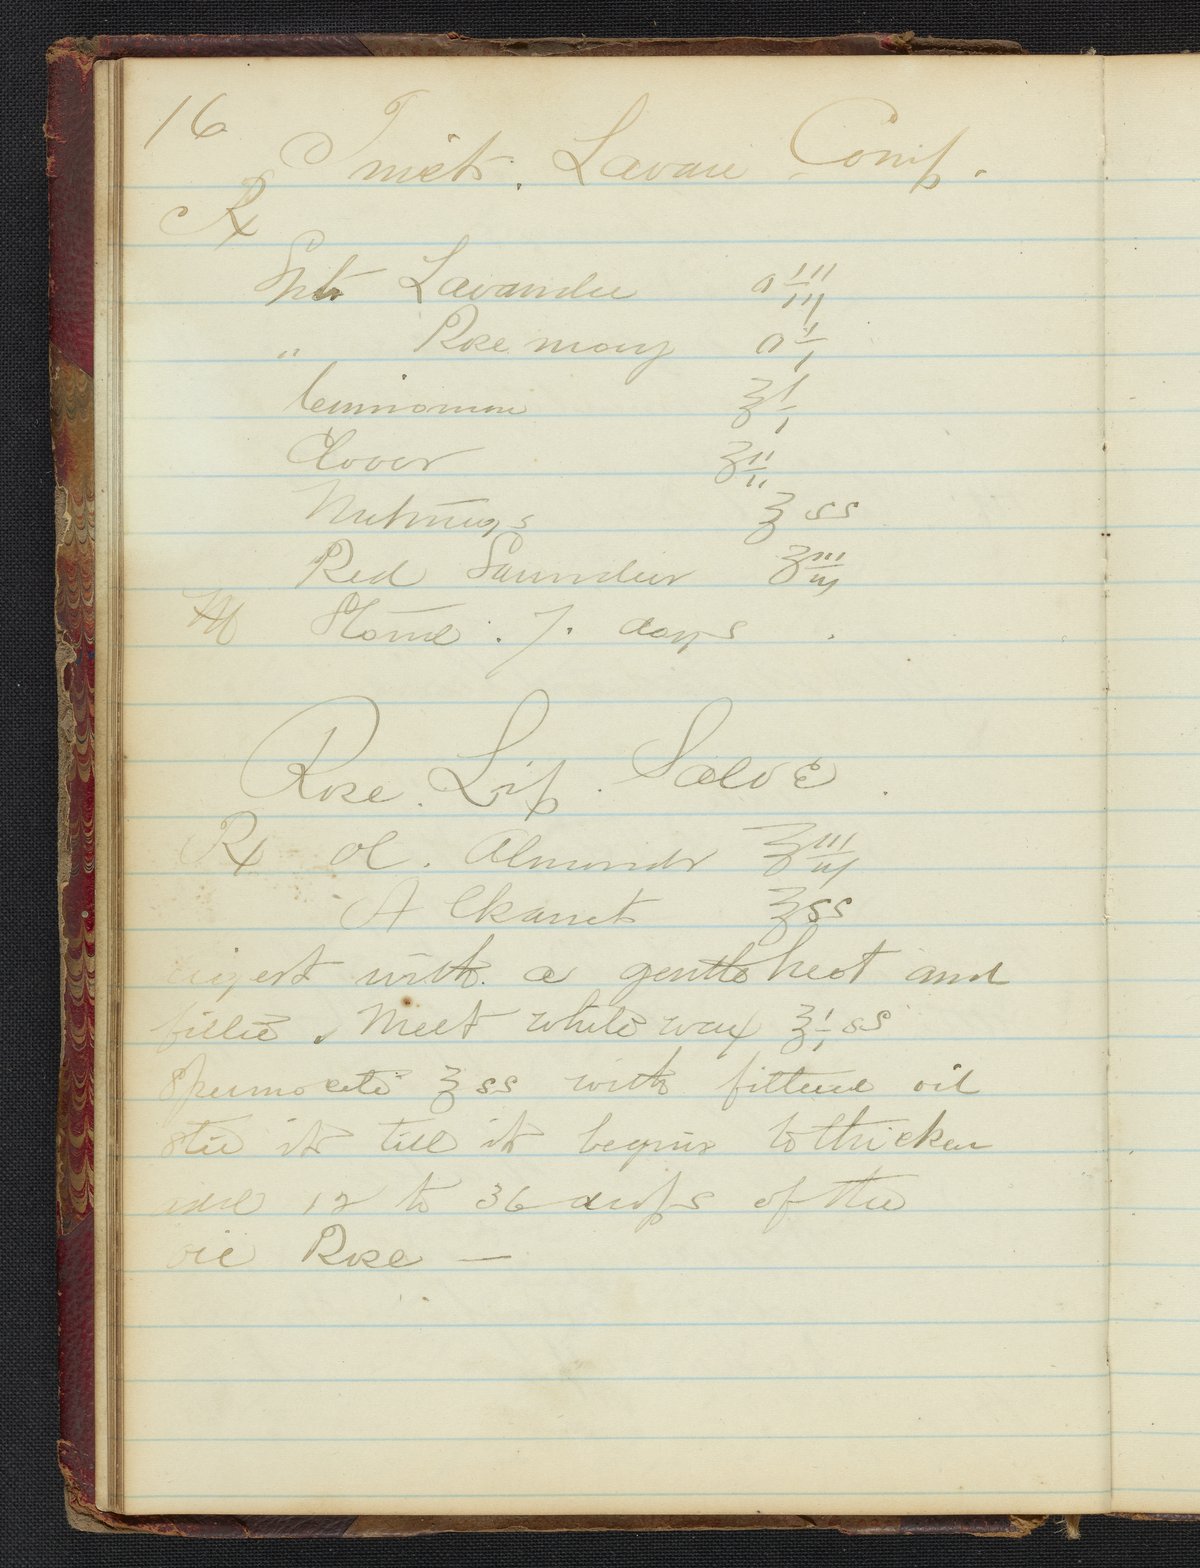 16
Tinct. Lavan Comp.
℞
Spts Lavander O iii
" Rosemary O i
Cinnomon ℥ i
Clover ʒ ii
Nutmegs ℥ ss
Red Saunders ʒ iii
M Stand . 7. days .
Rose . Lip . Salve .
℞ Ol . Almonds ℥ iii
Alkanet ℥ ss
digest with a gentle heat and
filter . Melt white wax ℥ i ss
Spermoceti ℥ ss with filtered oil
Stir it till it begins to thicken
add 12 to 36 drops of the
oil Rose —